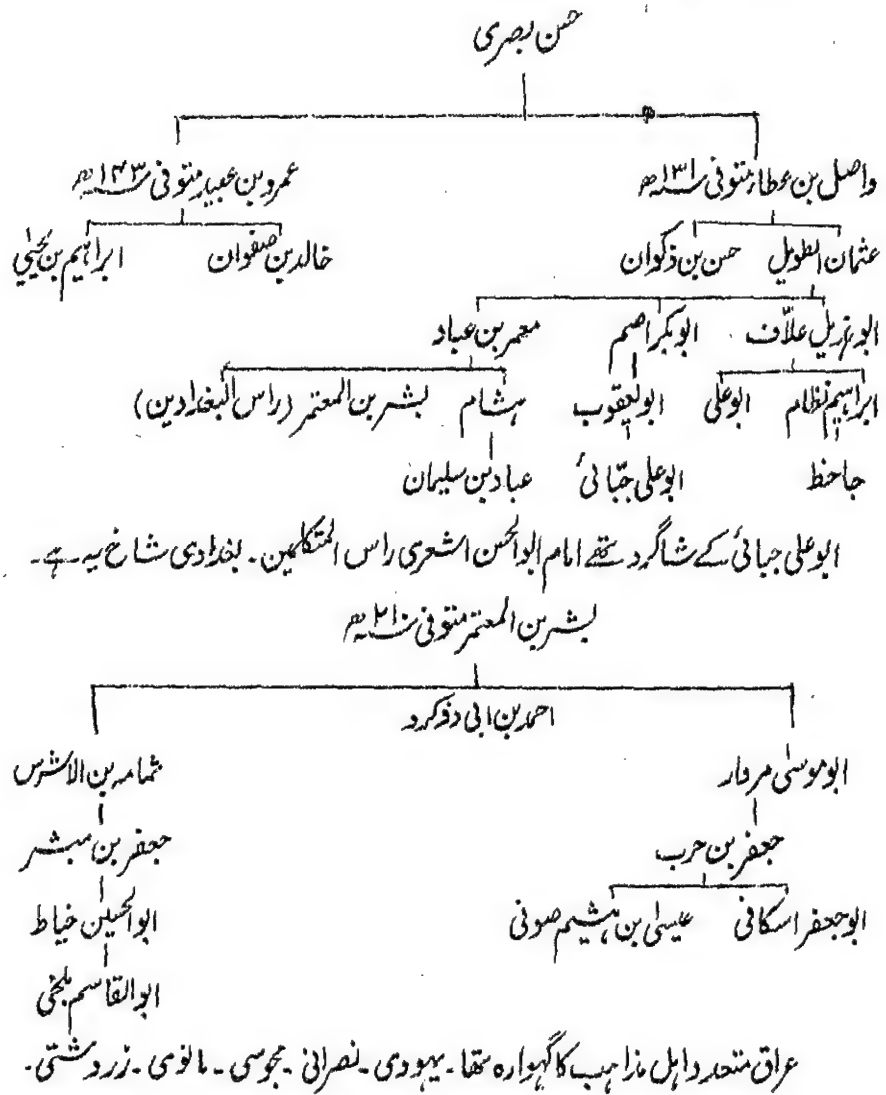 حسن بصری
واصل بن عطاء متوفی ۱۳۱ھ عمرو بن عبید متوفی ۱۴۳ھ
عثمان الطویل حسن بن ذکوان خالد بن صفوان ابراہیم بن یحییٰ
ابو ہزیل علّاف ابوبکر اصم معمر بن عباد
ابراہیم نظام ابوعلی ابو یعقوب ہشام بشر بن المعتمر (راس البغدادین)
جاحظ ابوعلی جبّائی عباد بن سلیمان
ابوعلی جبائی کے شاگرد تھے امام ابوالحسن اشعری راس المتکلمین۔ بغدادی شاخ یہ ہے۔
بشر بن المعتمر متوفی ۲۱۰ھ
احمد بن ابی دؤکرد
ابو موسیٰ مردار ثمامہ بن الاشرس
جعفر بن حرب جعفر بن مبشر
ابو جعفر اسکافی عیسیٰ بن ہشیم صوفی ابوالحسین خیاط
ابوالقاسم بلخی
عراق متعدد اہل مذاہب کا گہوارہ تھا۔ یہودی۔ نصرانی۔ مجوسی۔ مانوی۔ زردشتی۔